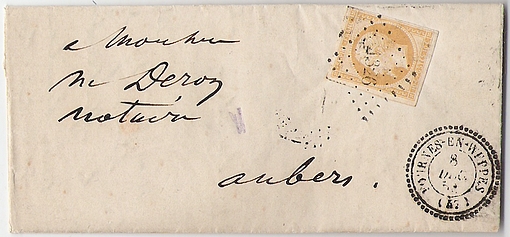 a Monsieur
M Deroy
notaire
aubers.
FOURNES-EN-WEPPES
8
DEC
(57)